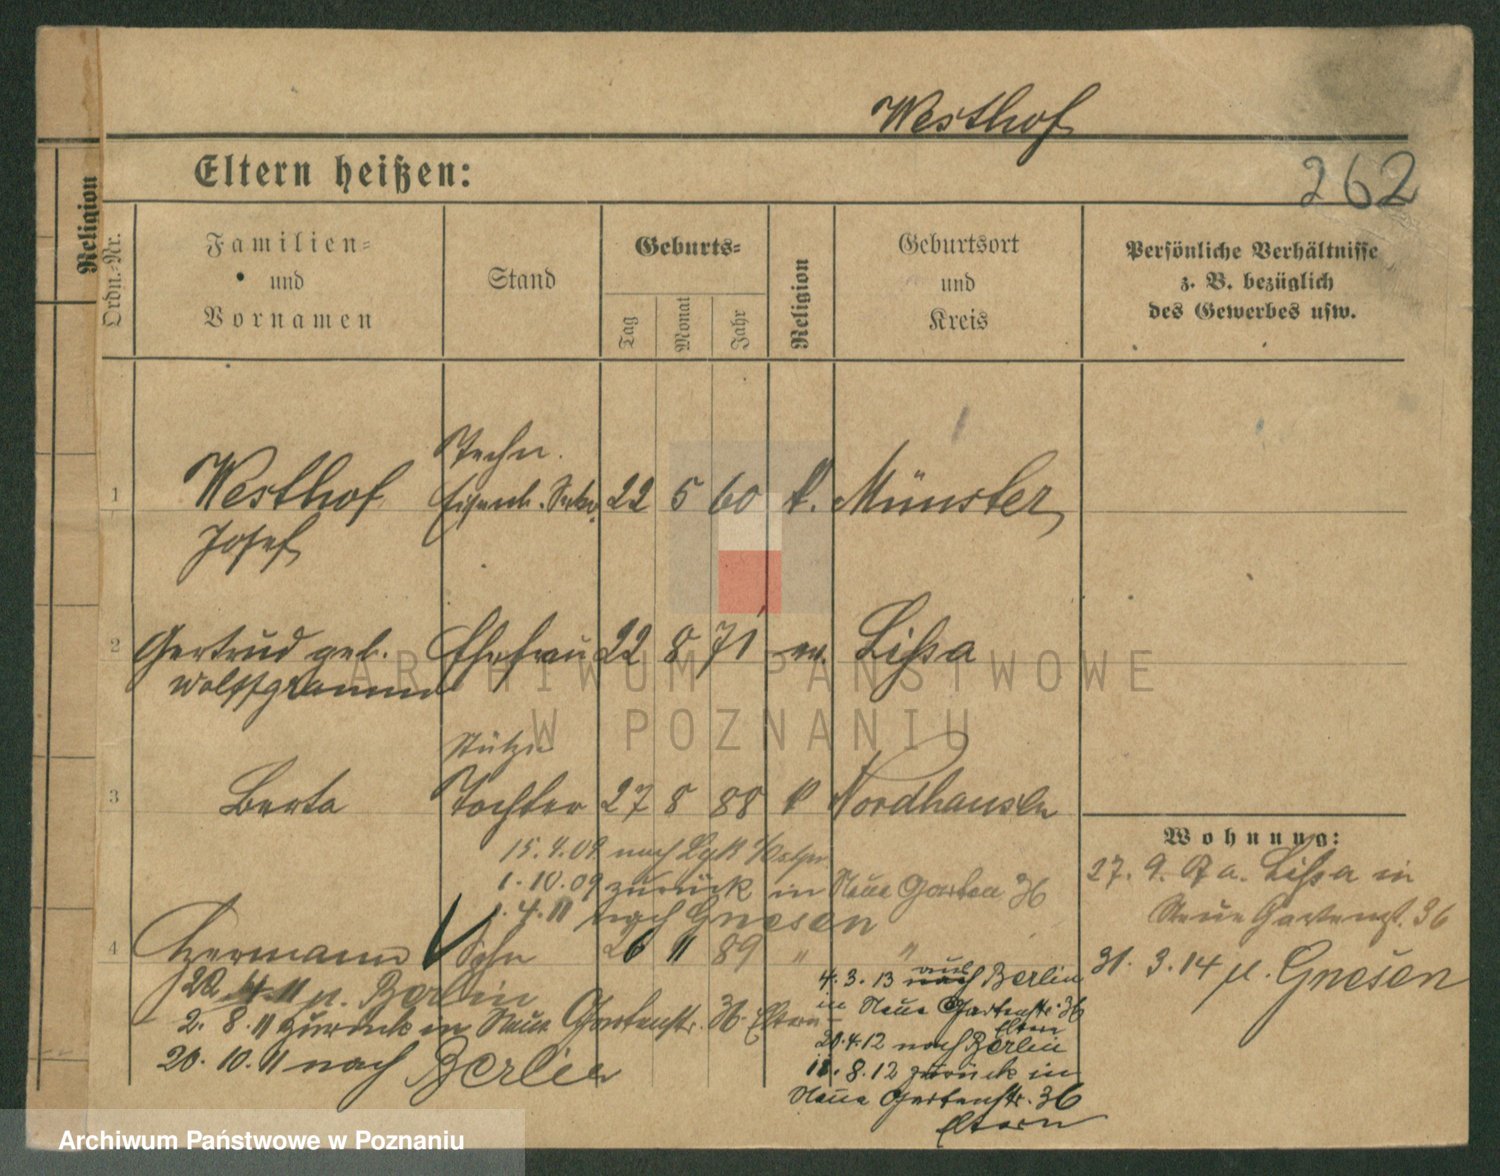 Westhof
262
Eltern heißen:
Religion
Ordn.-Nr.
Familien-
und
Vornamen
Stand
Geburts-
Tag
Monat
Jahr
Religion
Geburtsort
und
Kreis
Persönliche Verhältnisse
z. B. bezüglich
des Gewerbes usw.
Techn.
1 Westhof Eisenb. Sekr. 22 5 60 k. Münster
Josef
2 Gertrud geb. Ehefrau 22 8 71 ev. Lissa
Wolffgramm
Stütze
3 Berta Tochter 27 8 88 k Nordhausen
15.4.09 nach
1.10.09 zurück in Neue Garten 36
1.4.11 nach Gnesen
4 Hermann Sohn 26 11 89 " "
20.4.11 n. Berlin
2.8.11 zurück in Neue Gartenstr. 36 Eltern
20.10.11 nach Berlin
4.3.13 nach aus Berlin
in Neue Gartenstr. 36
Eltern
20.4.12 nach Berlin
18.8.12 zurück in
Neue Gartenstr. 36
Eltern
Wohnung:
27.9. a. Lissa in
Neue Gartenst. 36
31.3.14 n. Gnesen
ARCHIWUM PAŃSTWOWE
W POZNANIU
Archiwum Państwowe w Poznaniu